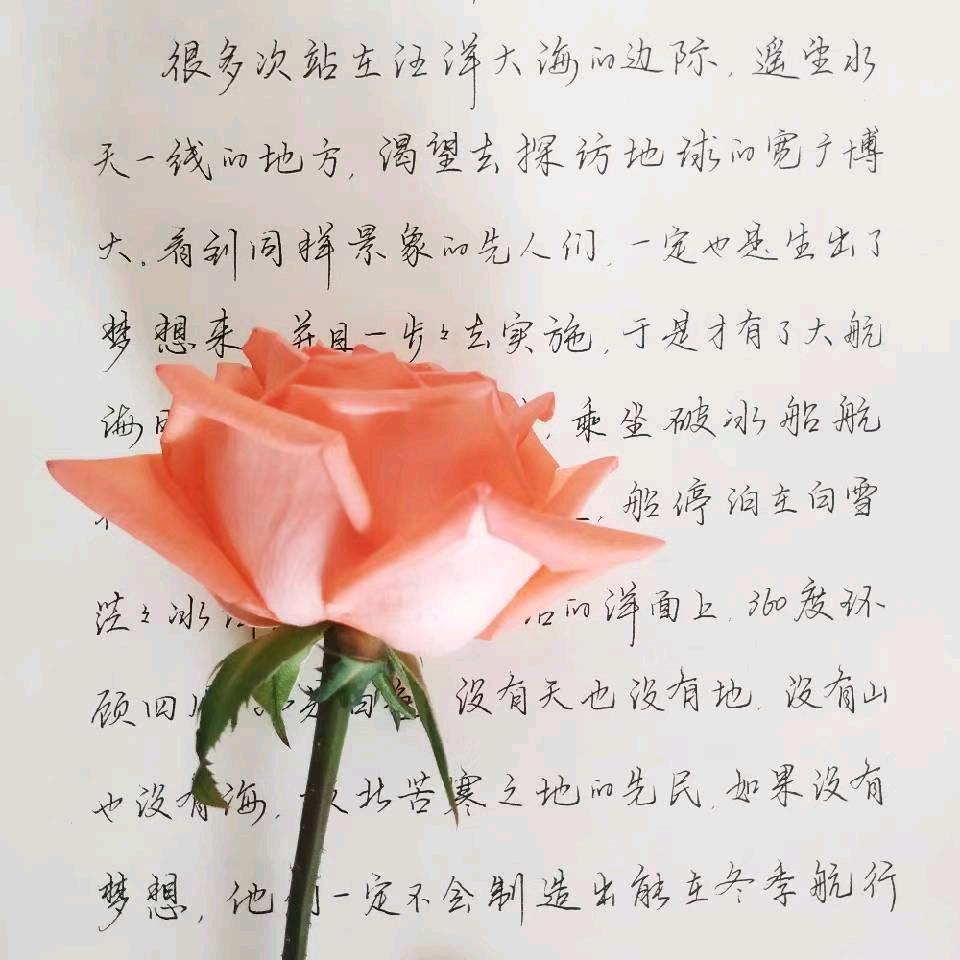 很多次站在汪洋大海的边际,遥望水
天一线的地方,渴望去探访地球的宽广博
大。看到同样景象的先人们,一定也是生出了
梦想来,并且一步々去实施,于是才有了大航
海时,乘坐破冰船航
船停泊在白雪
茫々冰的洋面上,360度环
顾四周,没有天也没有地,没有山
也没有海,北苦寒之地的先民,如果没有
梦想,他们一定不会制造出能在冬季航行